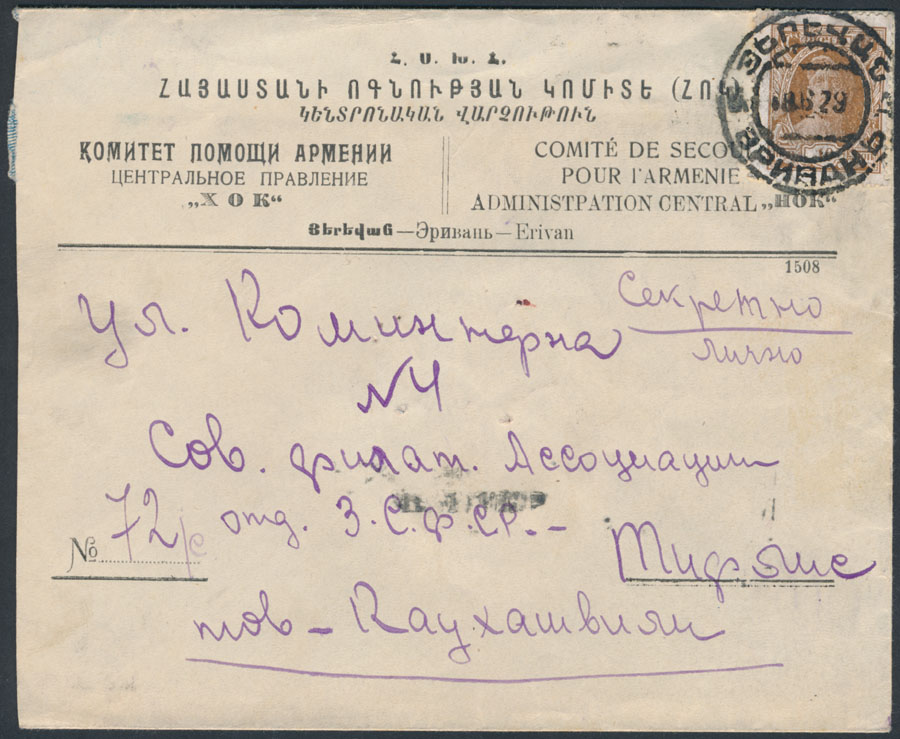 Հ. Ս. Խ. Հ.
ՀԱՅԱՍՏԱՆԻ ՕԳՆՈՒԹՅԱՆ ԿՈՄԻՏԵ (ՀՕԿ)
ԿԵՆՏՐՈՆԱԿԱՆ ՎԱՐՉՈՒԹՈՒՆ
КОМИТЕТ ПОМОЩИ АРМЕНИИ
ЦЕНТРАЛЬНОЕ ПРАВЛЕНИЕ
„ХОК“
COMITÉ DE SECOU
POUR l'ARMENIE
ADMINISTRATION CENTRAL „HOK“
Յերեվան—Эривань—Erivan
ՅԵՐԵՎԱՆ
6.29
ЭРИВАНЬ
1508
Секретно
лично
ул. Коминтерна
N4
Сов. филат. Ассоциации
отд. З.С.Ф.СР.-
№ 72/с
Тифлис
тов - Каухашвили